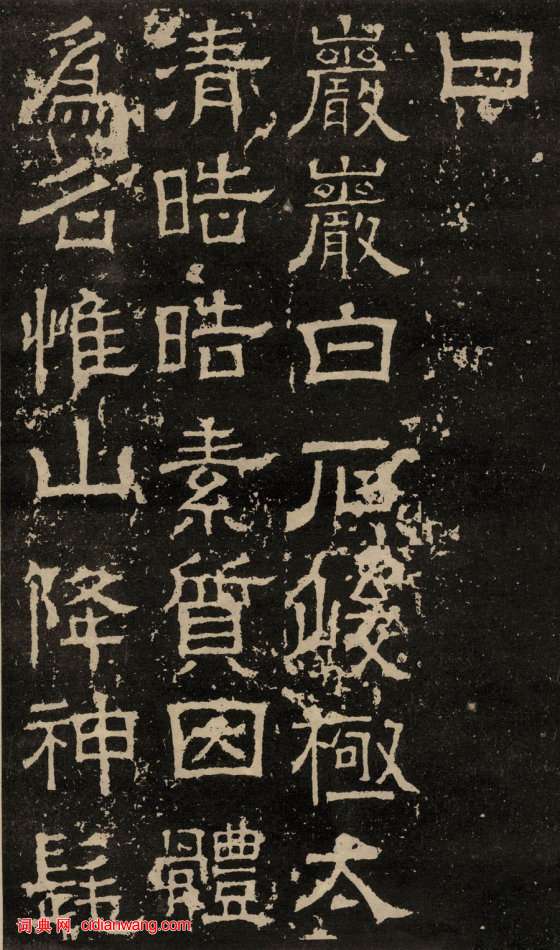 曰
巖巖白石峻極太
清晧晧素質因體
爲名惟山降神髦
词典网 cidianwang.com